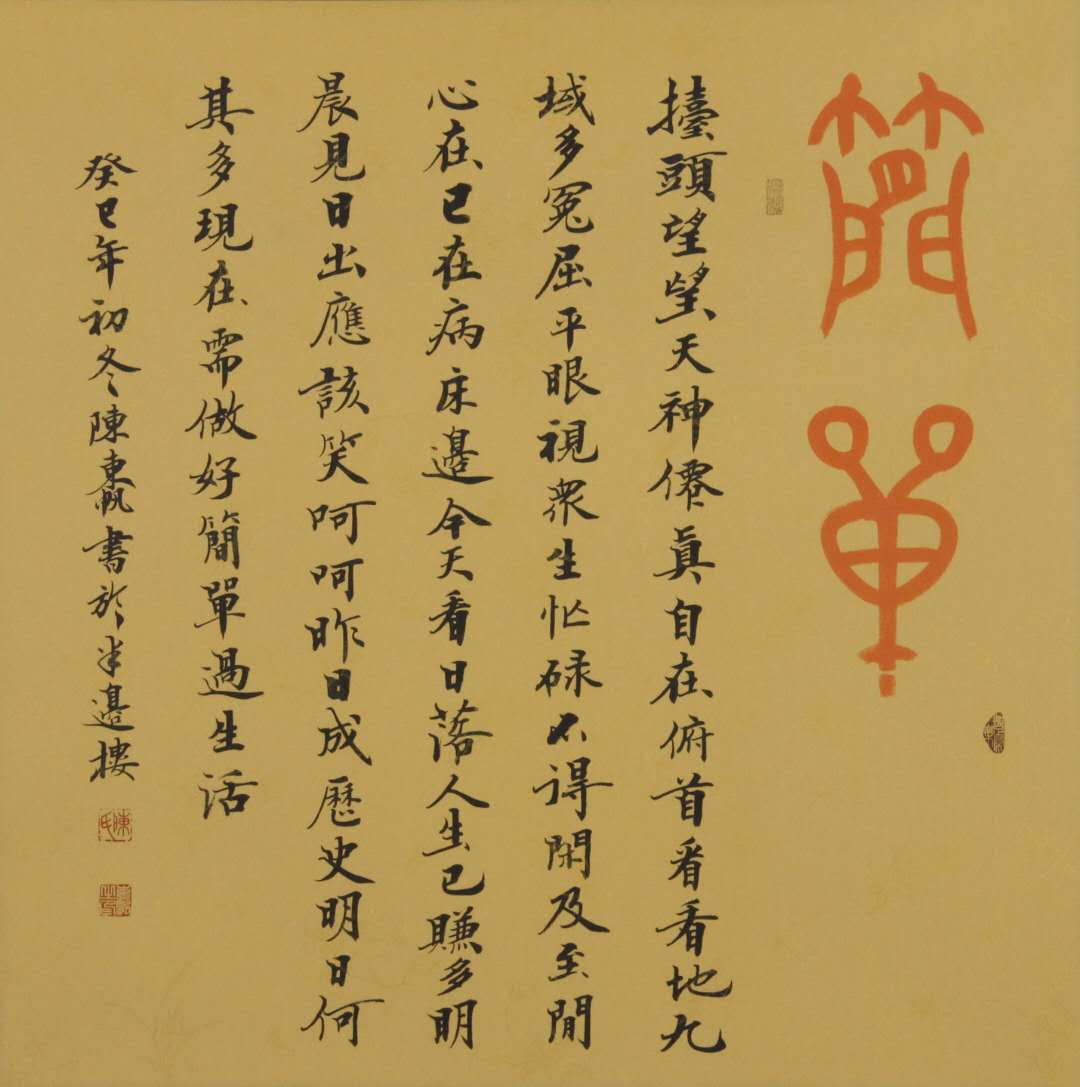 簡單
擡頭望望天神僊真自在俯首看看地九
域多冤屈平眼視衆生忙碌不得閑及至閒
心在已在病床邊今天看日落人生已賺多明
晨見日出應該笑呵呵昨日成歷史明日何
其多現在需做好簡單過生活
癸巳年初冬陳東帆書於半邊樓